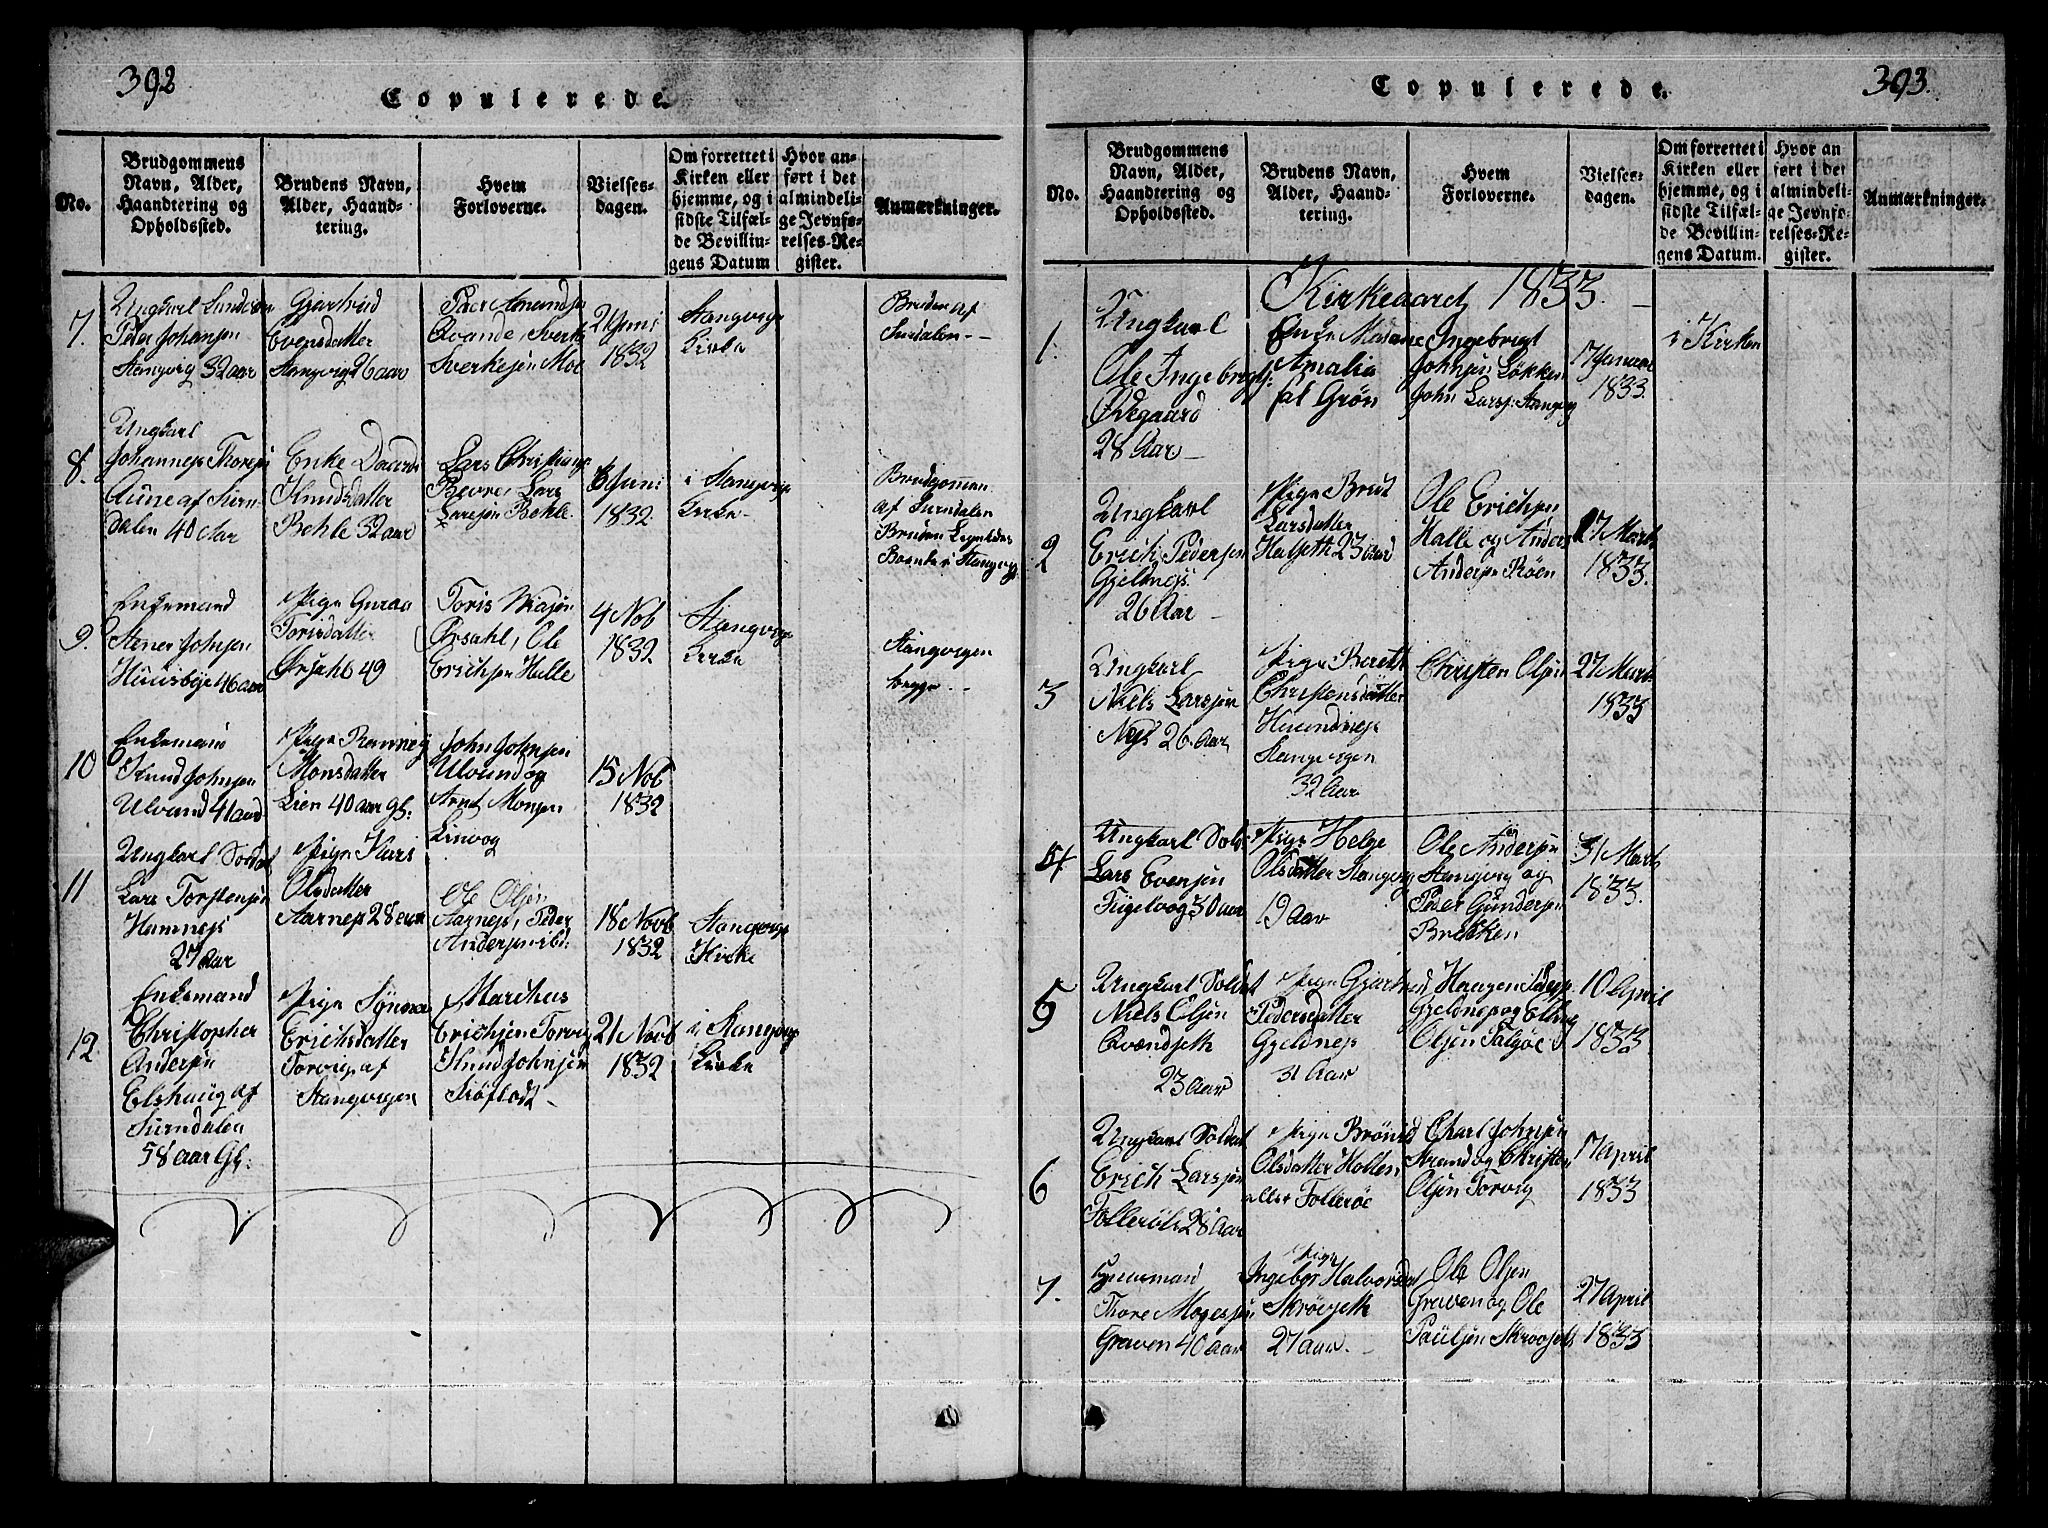 392
Copulerede.
No.
Brudgommens
Navn, Alder,
Haandtering og
Opholdssted.
Brudens Navn,
Alder, Haand-
tering.
Hvem
Forloverne.
Vielses-
dagen.
Om forrettet i
Kirken eller
hjemme, og i
sidste Tilfæl-
de Bevillin-
gens Datum
Hvor an-
ført i det
almindeli-
ge Jevnfø-
relses-Re-
gister.
Anmærkninger.
7.
Ungkarl
Peder Johansen
Stangvig 32 aar
Gjertrud
Evensdatter
Stangvig 26 aar
Peer Amundsen
Qvande, Sverke
Sverkesen Moe
2 Juni
1832
Stangvigs
Kirke
Bruden af
Surdalen
8.
Ungkarl
Johannes Thoresen
Aune af Surn-
dalen 40 Aar
Enke
Knudsdatter
Behle 32 aar
Lars
Bævre, Lars
Larsen Behle
Juni
1832
i Stangvigs
Kirke
Brudgomen
af Surndalen
Bruden
9.
Enkemand
Stener Johnsen
Huusbye 46 aar
Pige Guroe
Torisdatter
Ørsahl 49
Toris
Ørsahl, Ole
Erichsen Halle
4 Nob
1832
Stangvigs
Kirke
Stangvigen
begge
10
Enkemand
Knud Johnsen
Ulvund 41 aar
Pige Ranneg
Monsdatter
Lien 40 aar gl:
John Johnsen
Ulvund og
Arnt Monsen
Linvog
15 Nob
1832
11
Ungkarl Soldat
Lars Torstensen
Hamnes
27 Aar
Pige Kari
Olsdatter
Aarnes 28 aar
Ole Olsen
Aarnes, Peder
Andersen ibd:
18 Novb
1832
Stangvigs
Kirke
12
Enkemand
Christopher
Andersen
Elshaug af
Surndalen
58 aar Gl:
Pige Synnøe
Erichsdatter
Torvig af
Stangvigen
Marchus
Erichsen Torvig
Knud Johnsen
21 Novb
1832
i Stangvigs
Kirke
393.
Copulerede.
No.
Brudgommens
Navn, Alder,
Haandtering og
Opholdssted.
Brudens Navn,
Alder, Haand-
tering.
Hvem
Forloverne.
Vielses-
dagen.
Om forrettet i
Kirken eller
hjemme, og i
sidste Tilfæl-
de Bevillin-
gens Datum.
Hvor an
ført i det
almindeli-
ge Jevnfø-
relses-Re-
gister.
Anmærkninger.
Kirkeaaret 1833.
1.
Ungkarl
Ole Ingebrigts:
Ødegaard
28 Aar
Enke Madame
Amalia
fød Grøn
Ingebrigt
Johnsen Løkken
John Lars: Stangvig
17 Januar
1833.
i Kirken
2
Ungkarl
Erich Pedersen
Gjeldnes
26 Aar
Pige Brut
Larsdatter
Halseth 23 aar
Ole Erichsen
Halle og Anders
Andersen Røen
27 Marts
1833.
3
Ungkarl
Niels Larsen
26 Aar
Pige Bereth
Christensdatter
Stangvigen
32 Aar
Christen Olsen
27 Marts
1833
4
Ungkarl Sold:
Lars Evensen
Fugelvog 30 aar
Pige Helge
Olsdatter Stangvig
19 Aar
Ole Andersen
Stangvig og
Peder Gundersen
Brekken
31 Marts
1833.
5
Ungkarl Soldat
Niels Olsen
Qvændseth
23 Aar
Pige Gjertrud
Pedersdatter
Gjeldnes
31 Aar
Haagen Peders:
Gjeldnes og
Olsen Talgøe
10 April
1833
6
Ungkarl Soldat
Erich Larsen
28 Aar
Pige Brønild
Olsdatter Holten
eller Follerøe
Charl Johnsen
Strand og Christen
Olsen Torvig
17 April
1833
7.
Thore Mogensen
Graven 40 aar
Pige
Ingebor Halvorsdat
Skrøvseth
27 aar
Ole Olsen
Graven og Ole
Paulsen Skrøvseth
27 April
1833